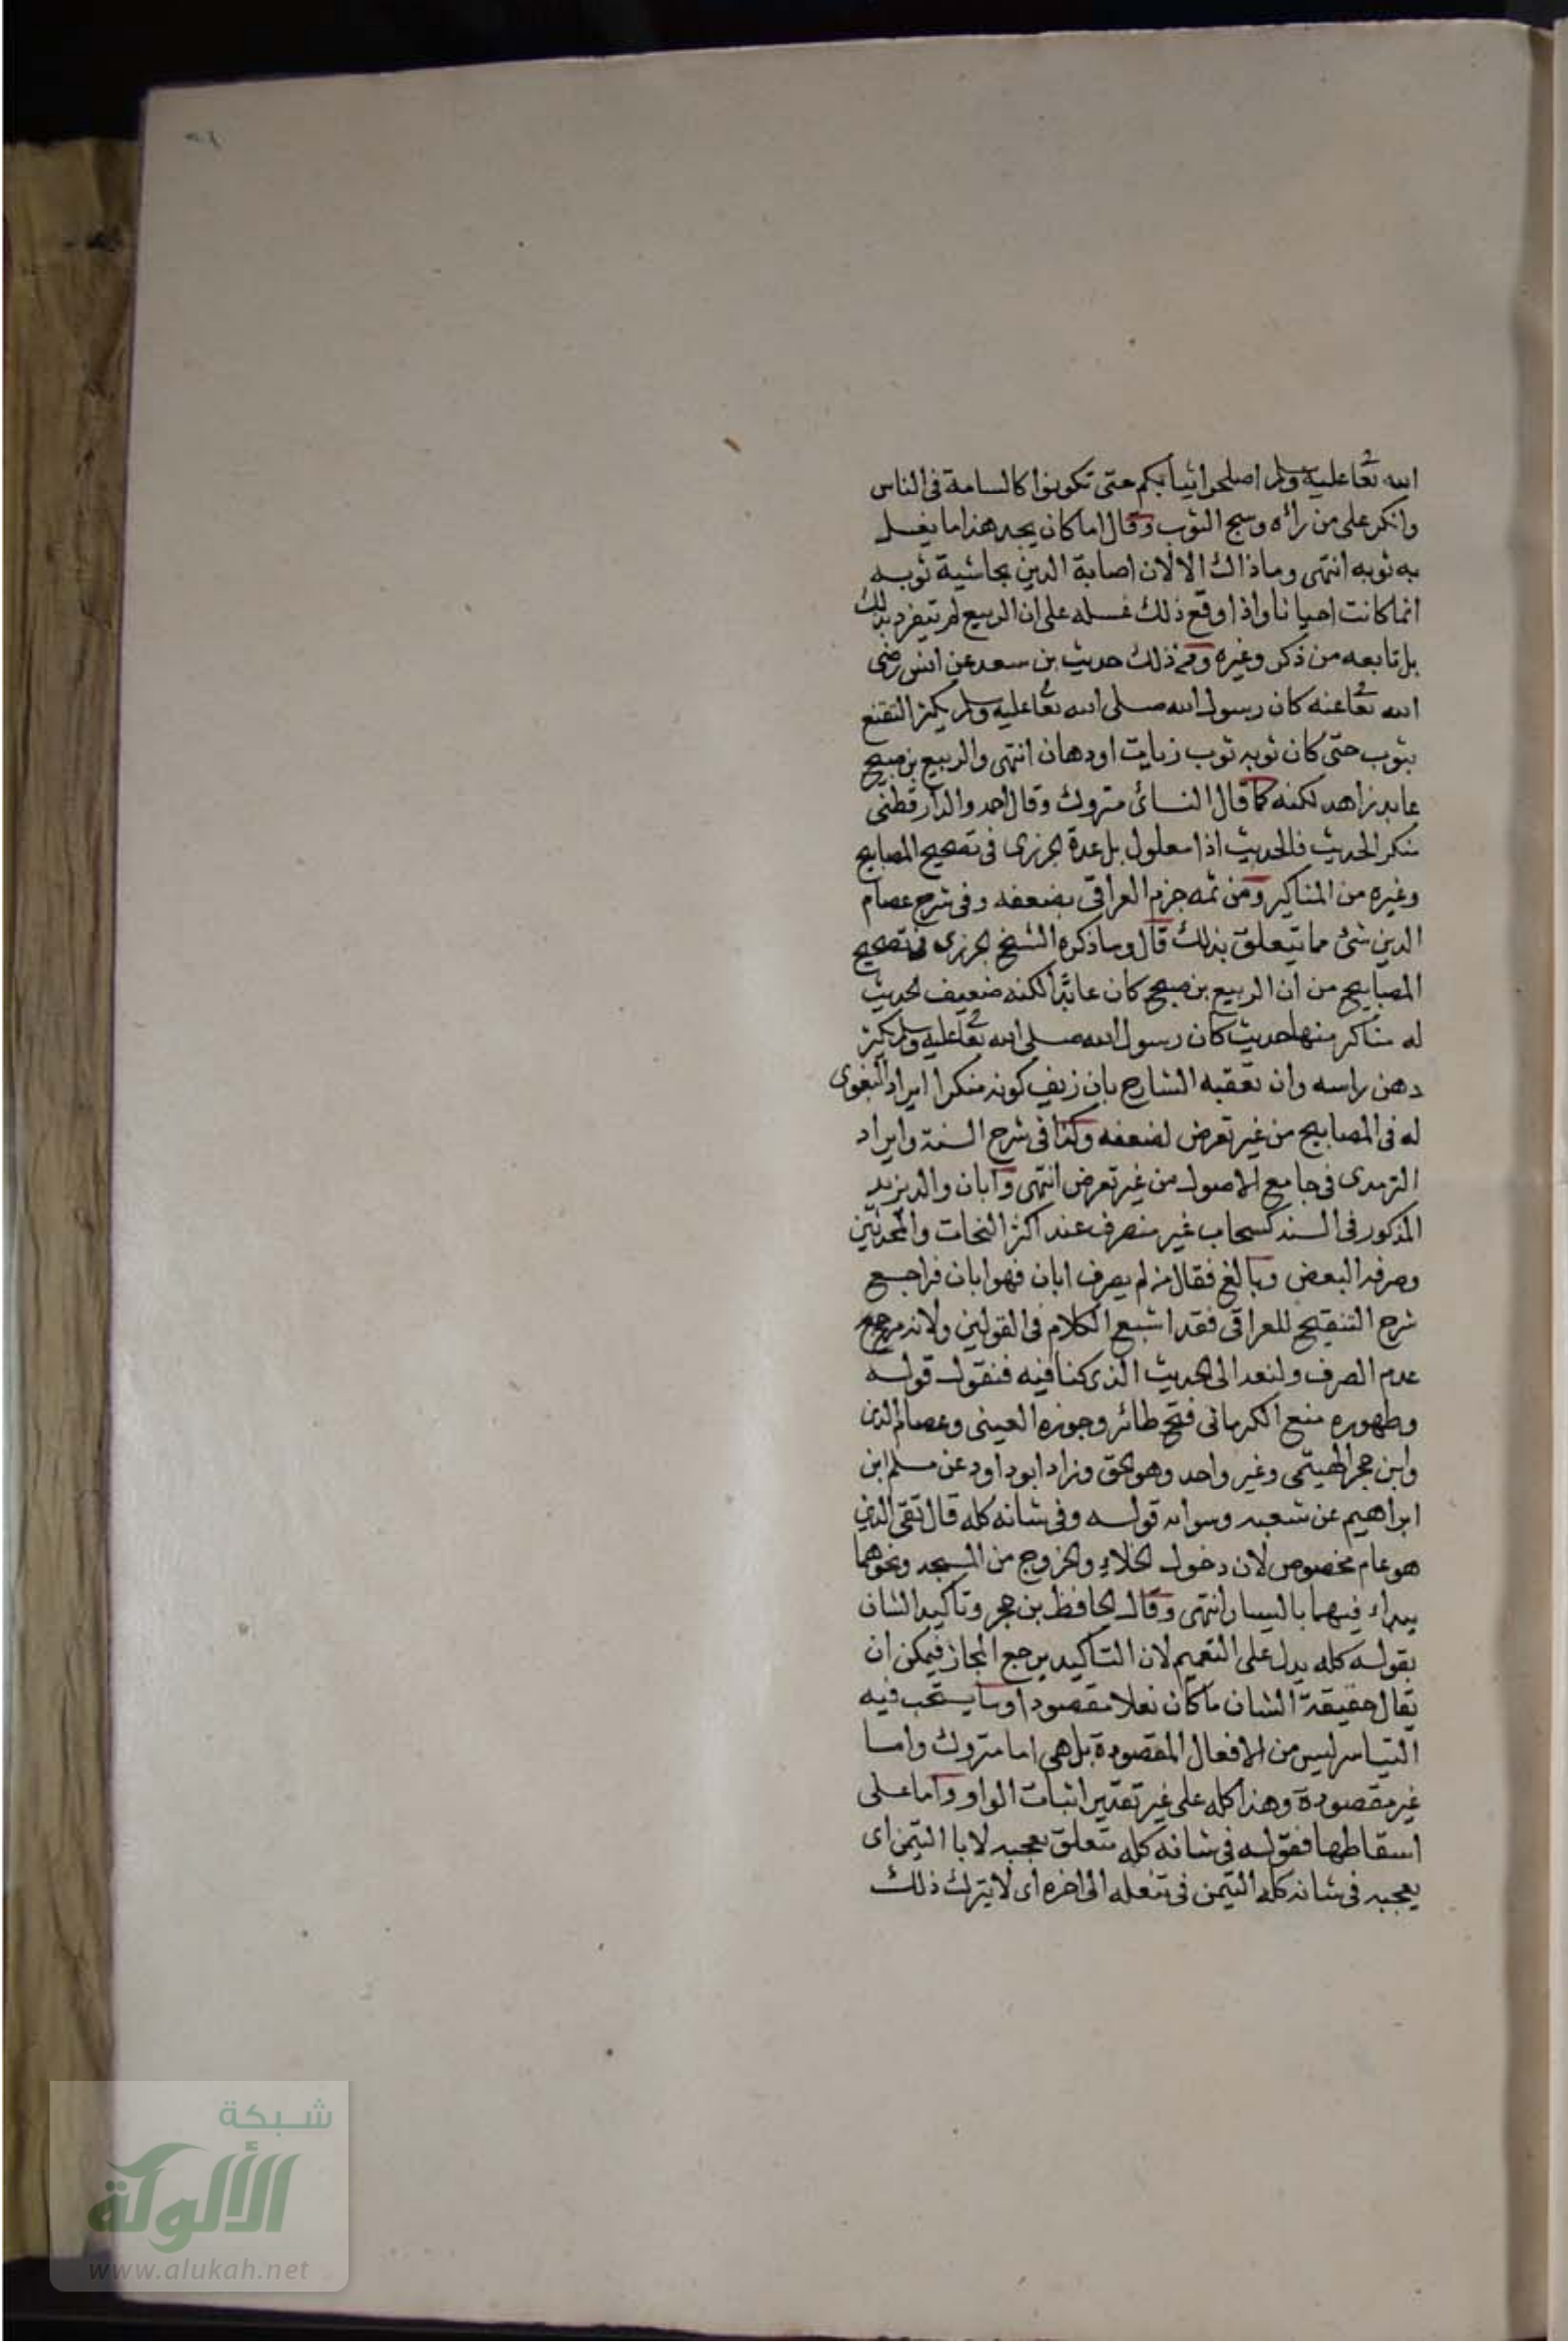 الله تعا عليه وسلم اصلحوا ثيابكم حتى تكونوا كالسامة فى الناس
وانكر على من رأه وسخ الثوب وقال اما كان يجد هذا ما يغسل
به ثوبه انتهى وما ذاك الا لان اصابة الدهن بحاشية ثوبه
انما كانت احيانا واذا وقع ذلك غسله على ان الربيع لم تيفرد بذلك
بل تابعه من ذكر وغيره وفى ذلك حديث بن سعد عن انس رضى
الله تعا عنه كان رسول الله صلى الله تعا عليه وسلم يكثر التقنع
بثوب حتى كان ثوبه ثوب زيات او دهان انتهى والربيع بن صبيح
عابد زاهد لكنه كما قال النسائ متروك وقال احمد والدارقطنى
منكر الحديث فالحديث اذا معلول بل عدة الجزرى فى تصحيح المصابيح
وغيره من المناكير ومن ثمه جزم العراقى بضعفه وفى شرح عصام
الدين شئ مما تتعلق بذلك قال وما ذكره الشيخ الجزرى فى تصحيح
المصابيح من ان الربيع بن صبيح كان عابدا لكنه ضعيف الحديث
له مناكر منها حديث كان رسول الله صلى الله تعا عليه وسلم يكثر
دهن راسه وان تعقبه الشارح بان زيف كونه منكرا ايراد البغوى
له فى المصابيح من غير تعرض لضعفه وكذا فى شرح السنة وايراد
الترمدى فى جامع الاصول من غير تعرض انتهى وابان والد يزيد
المذكور فى السند كسحاب غير منصرف عند اكثر النحات والمحدثين
وصرفه البعض وبالغ فقال من لم يصرف ابان فهو ابان فراجع
شرح التنقيح للعراقى فقد اشبع الكلام فى القولين ولانه مرجح
عدم الصرف ولنعد الى الحديث الذى كنا فيه فنقول قوله
وطهوره منع الكرمانى فتح طائه وجوزه العينى وعصام الدين
وابن حجر الهيتمى وغير واحد وهو الحق وزاد ابو داود عن مسلم ابن
ابراهيم عن شعبه وسواكه قوله وفى شانه كله قال تقى الدين
هو عام مخصوص لان دخول الخلاء والخروج من المسجد ونحوهما
يبداء فيهما باليسار انتهى وقال الحافظ بن حجر وتاكيد الشان
بقوله كله يدل على التعميم لان التاكيد يرجع المجاز فيمكن ان
يقال حقيقة الشان ما كان فعلا مقصودا وما يستحب فيه
التياسر ليس من الافعال المقصودة بل هى اما متروك واما
غير مقصودة وهذا كله على غير تقدير اثبات الواو واما على
اسقاطها فقوله فى شانه كله متعلق بعجبه لا با التيمن اى
يعجبه فى شانه كله التيمن فى تنعله الى اخره اى لا يترك ذلك
شبكة
الألوكة
www.alukah.net